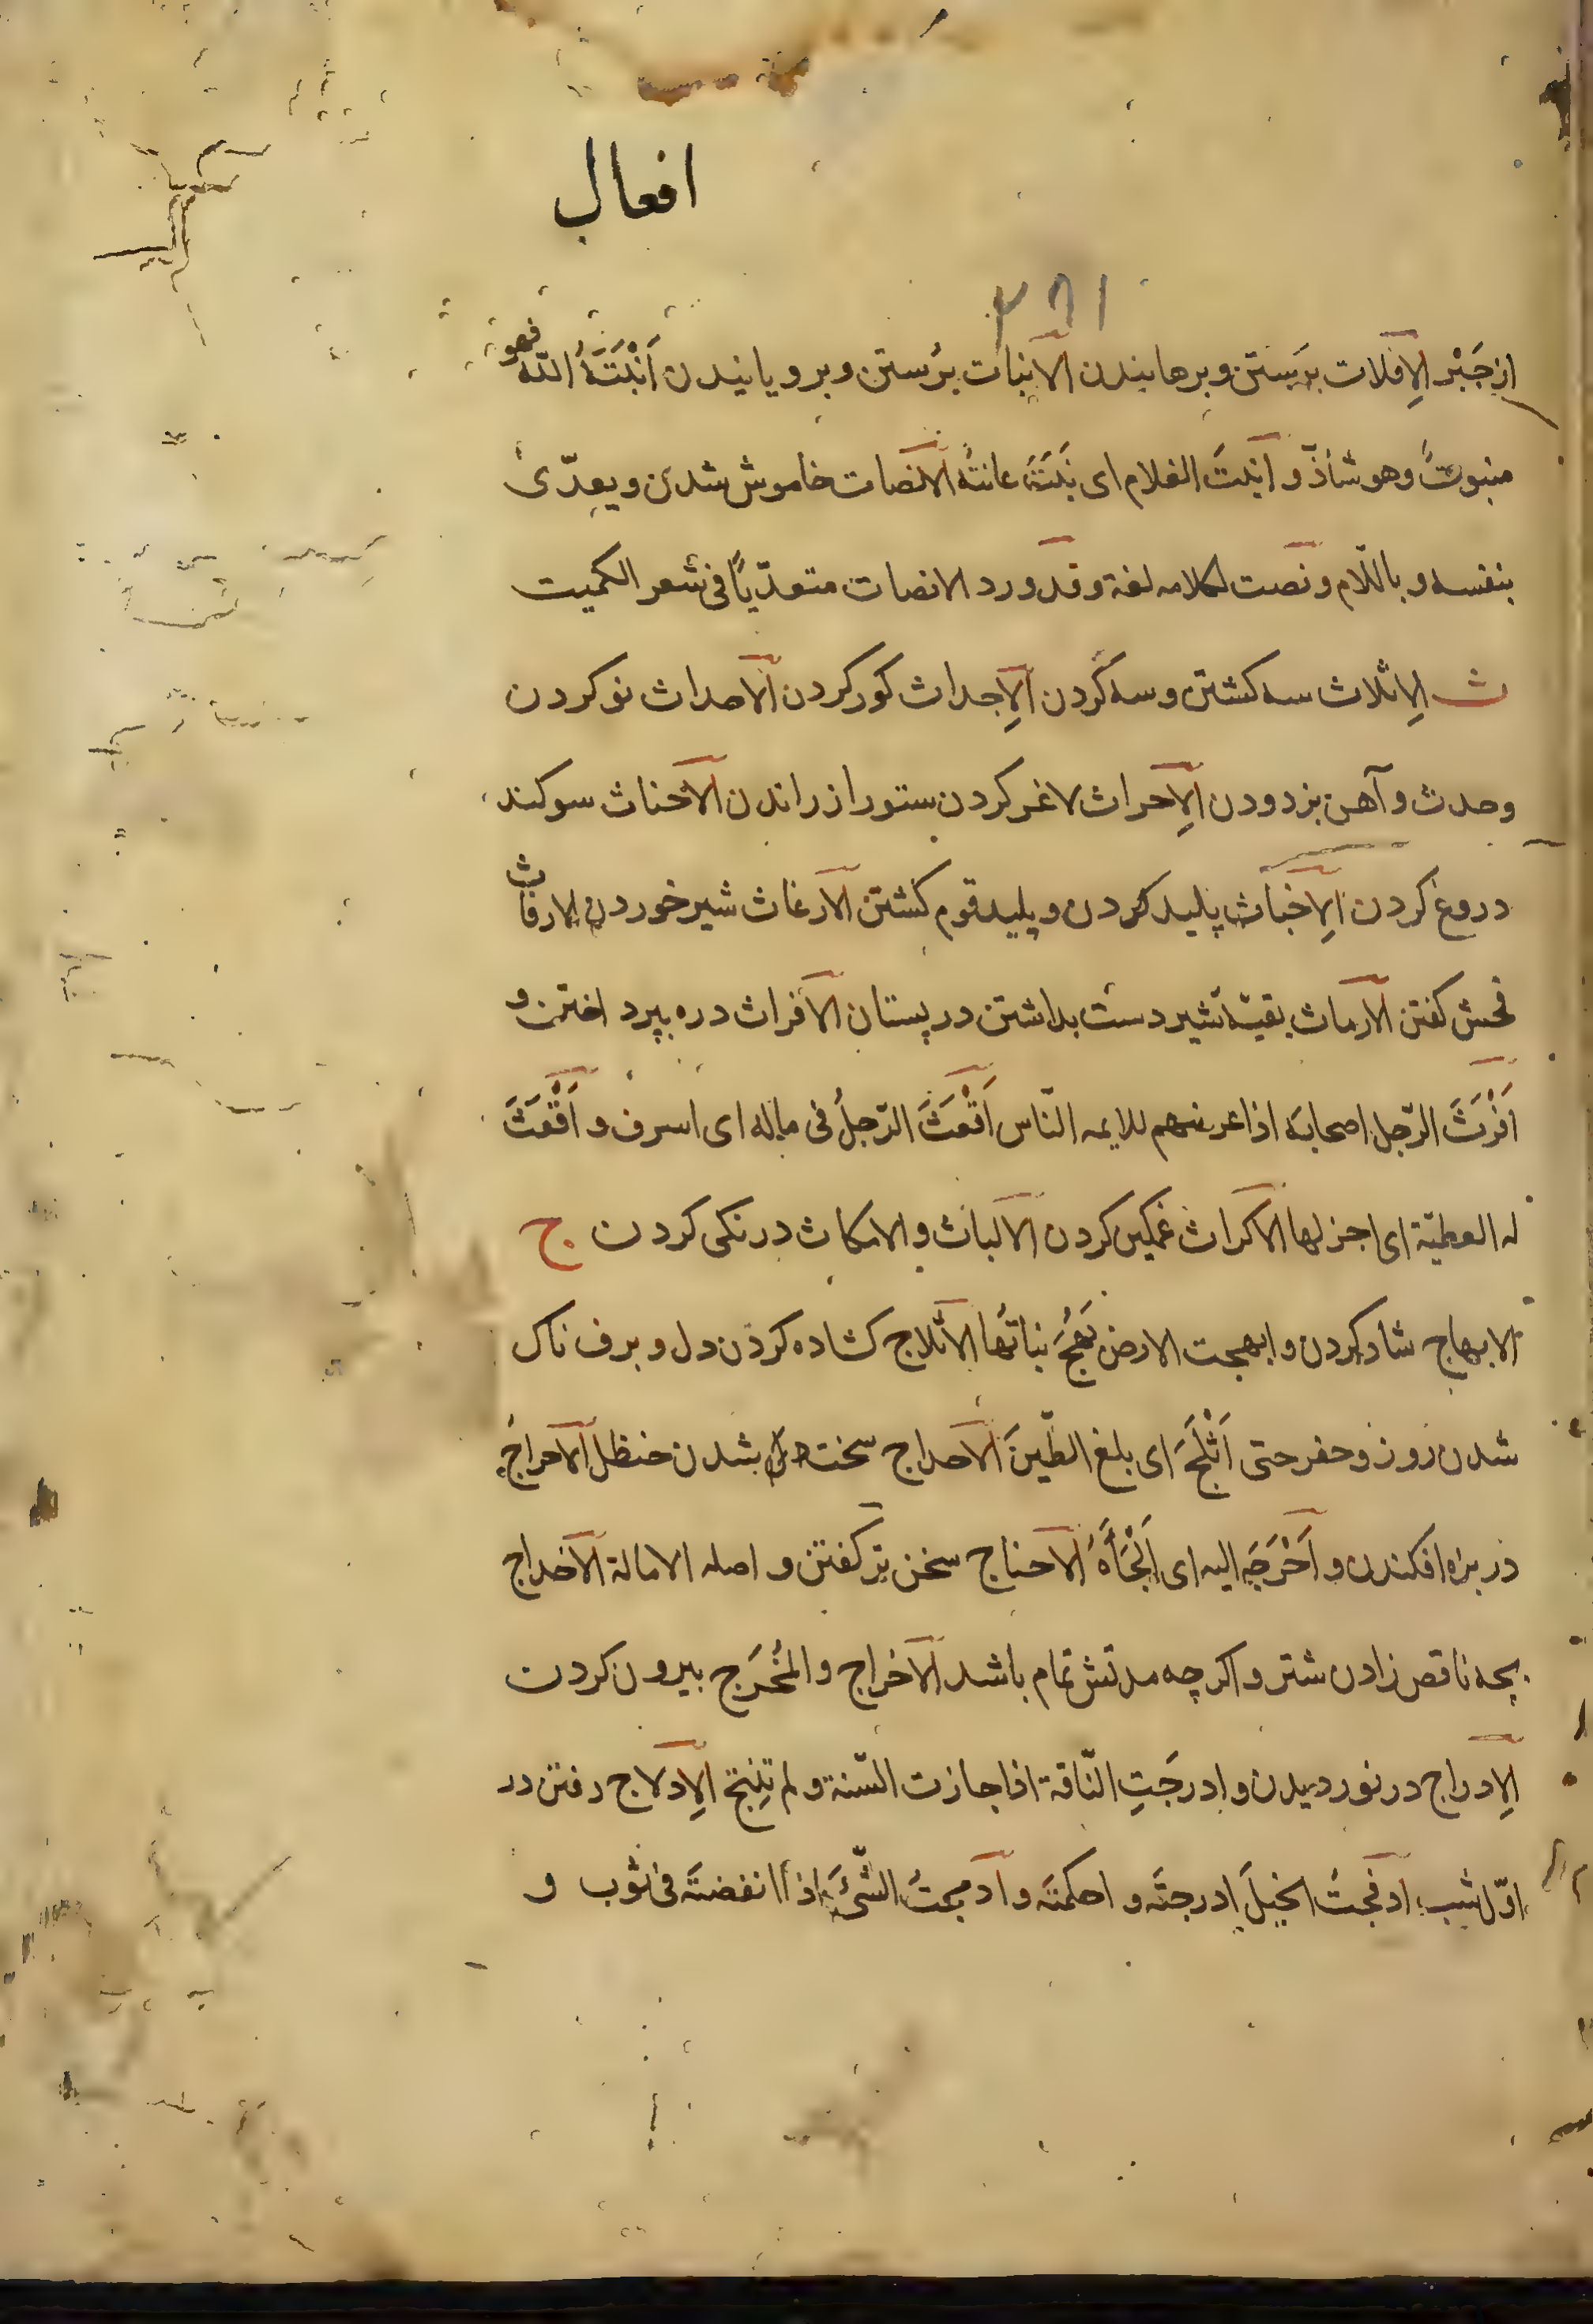 افعال
از جَبْر الاِفلات برَستن و برهانیدن الانبات برُستن و برویانیدن اَنْبَتَهُ اللّه فهو
منبوتٌ وهو شاذّ و انبتَ الغلام ای نَبَتَتْ عانتهُ الانصات خاموش شدن و یعدّی
بنفسه و باللّام و نصت لکلامه لغة وقد ورد الانصات متعدّیاً فی شعر الکمیت
ث الاِثلاث سه کشتن و سه کردن الاِجداث کور کردن الاحداث نو کردن
وحدث و آهن بزدودن الاِحراث لاغر کردن ستور از راندن الاحناث سوکند
دروغ کردن الاِخباث پلید کردن و پلید قوم کشتن الارغاث شیر خوردن الارفاث
فحش کفتن الارماث بقیّهٔ شیر دست بداشتن در پستان الافراث دره بپرداختن و
اَفْرَثَ الرّجل اصحابَه اذا عرضهم للایمه النّاس اَقْعَثَ الرّجلُ فی ماله ای اسرف و اَقْعَثَ
له العطیّة ای اجزلها الاکراث غمکین کردن الالباث و الامکاث درنکی کردن ج
الابهاج شاد کردن و ابهجت الارض بَهُجَ نباتُها الاثلاج کشاده کردن دل و برف ناک
شدن روز و حفر حتی اَثْلَجَ ای بلغ الطّینَ الاحداج سخت شدن حنظل الاحراج
در بزه افکندن و اَحْرَجَه الیه ای اَلْجَأَهُ الاحناج سخن بز کفتن و اصله الامالة الاخداج
بچه ناقص زادن شتر و اکرچه مدتش تمام باشد الاخراج والمُخْرَج بیرون کردن
الاِدراج در نوردیدن و ادرجَتِ النّاقة اذا جازت السّنة و لم تنتج الاِدلاج رفتن در
اوّل شب ادمجتُ الحبلَ ادرجته و احکمته و ادمجتُ الشّیءَ اذا انفضته فی ثوب و